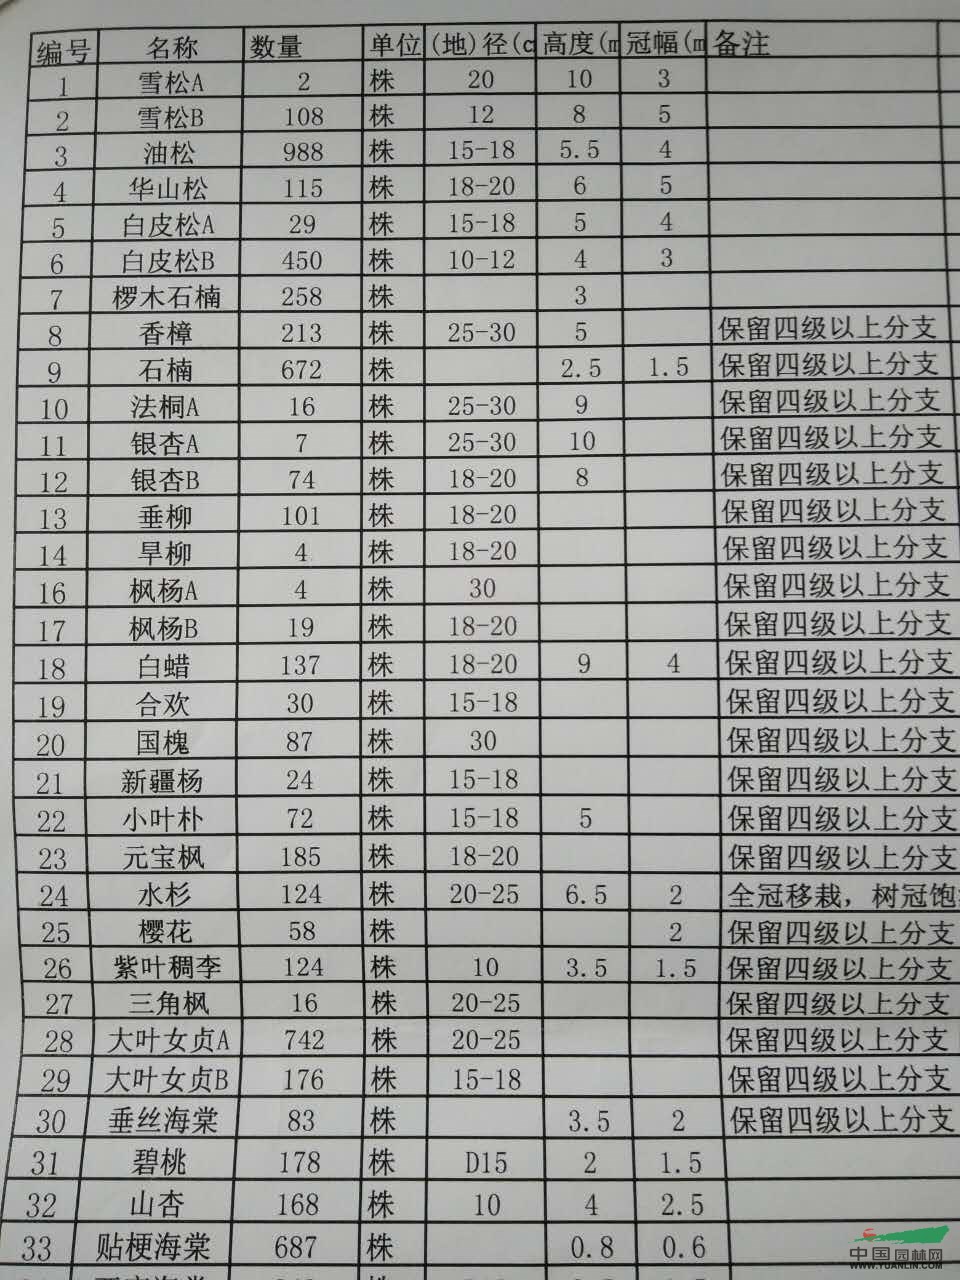 编号 名称 数量 单位 (地)径(c 高度(m 冠幅(m 备注
1 雪松A 2 株 20 10 3
2 雪松B 108 株 12 8 5
3 油松 988 株 15-18 5.5 4
4 华山松 115 株 18-20 6 5
5 白皮松A 29 株 15-18 5 4
6 白皮松B 450 株 10-12 4 3
7 椤木石楠 258 株 3
8 香樟 213 株 25-30 5 保留四级以上分支
9 石楠 672 株 2.5 1.5 保留四级以上分支
10 法桐A 16 株 25-30 9 保留四级以上分支
11 银杏A 7 株 25-30 10 保留四级以上分支
12 银杏B 74 株 18-20 8 保留四级以上分支
13 垂柳 101 株 18-20 保留四级以上分支
14 旱柳 4 株 18-20 保留四级以上分支
16 枫杨A 4 株 30 保留四级以上分支
17 枫杨B 19 株 18-20 保留四级以上分支
18 白蜡 137 株 18-20 9 4 保留四级以上分支
19 合欢 30 株 15-18 保留四级以上分支
20 国槐 87 株 30 保留四级以上分支
21 新疆杨 24 株 15-18 保留四级以上分支
22 小叶朴 72 株 15-18 5 保留四级以上分支
23 元宝枫 185 株 18-20 保留四级以上分支
24 水杉 124 株 20-25 6.5 2 全冠移栽，树冠饱
25 樱花 58 株 2 保留四级以上分支
26 紫叶稠李 124 株 10 3.5 1.5 保留四级以上分支
27 三角枫 16 株 20-25 保留四级以上分支
28 大叶女贞A 742 株 20-25 保留四级以上分支
29 大叶女贞B 176 株 15-18 保留四级以上分支
30 垂丝海棠 83 株 3.5 2 保留四级以上分支
31 碧桃 178 株 D15 2 1.5
32 山杏 168 株 10 4 2.5
33 贴梗海棠 687 株 0.8 0.6
中国园林网
WWW.YUANLIN.COM